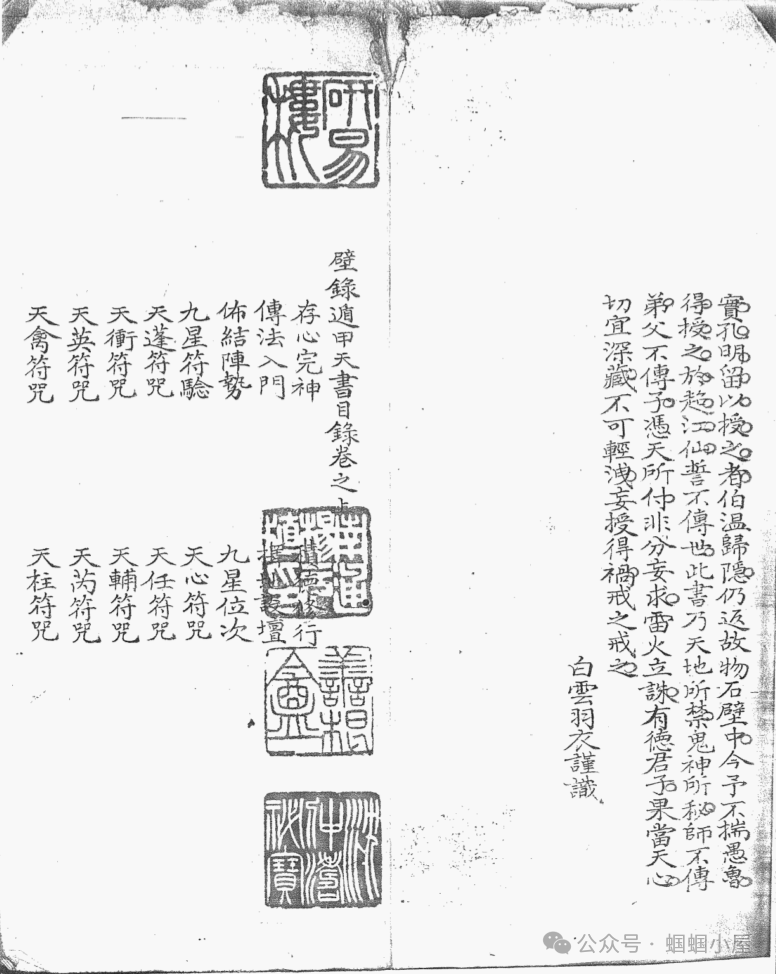 實孔明留以授之者伯温歸隱仍返故物石壁中今予不揣愚魯
得授之於趁江仙誓不傳也此書乃天地所禁鬼神所秘師不傳
弟父不傳子憑天所付非分妄求雷火立誅有德君子果當天心
切宜深藏不可輕洩妄授得禍戒之戒之
白雲羽衣謹識
研易樓
壁錄遁甲天書目錄卷之上
存心完神 積德修行
傳法入門 設壇
佈結陣勢 九星位次
九星符驗 天心符咒
天蓬符咒 天任符咒
天衝符咒 天輔符咒
天英符咒 天芮符咒
天禽符咒 天柱符咒
沈仲濤
公众号·蝈蝈小屋